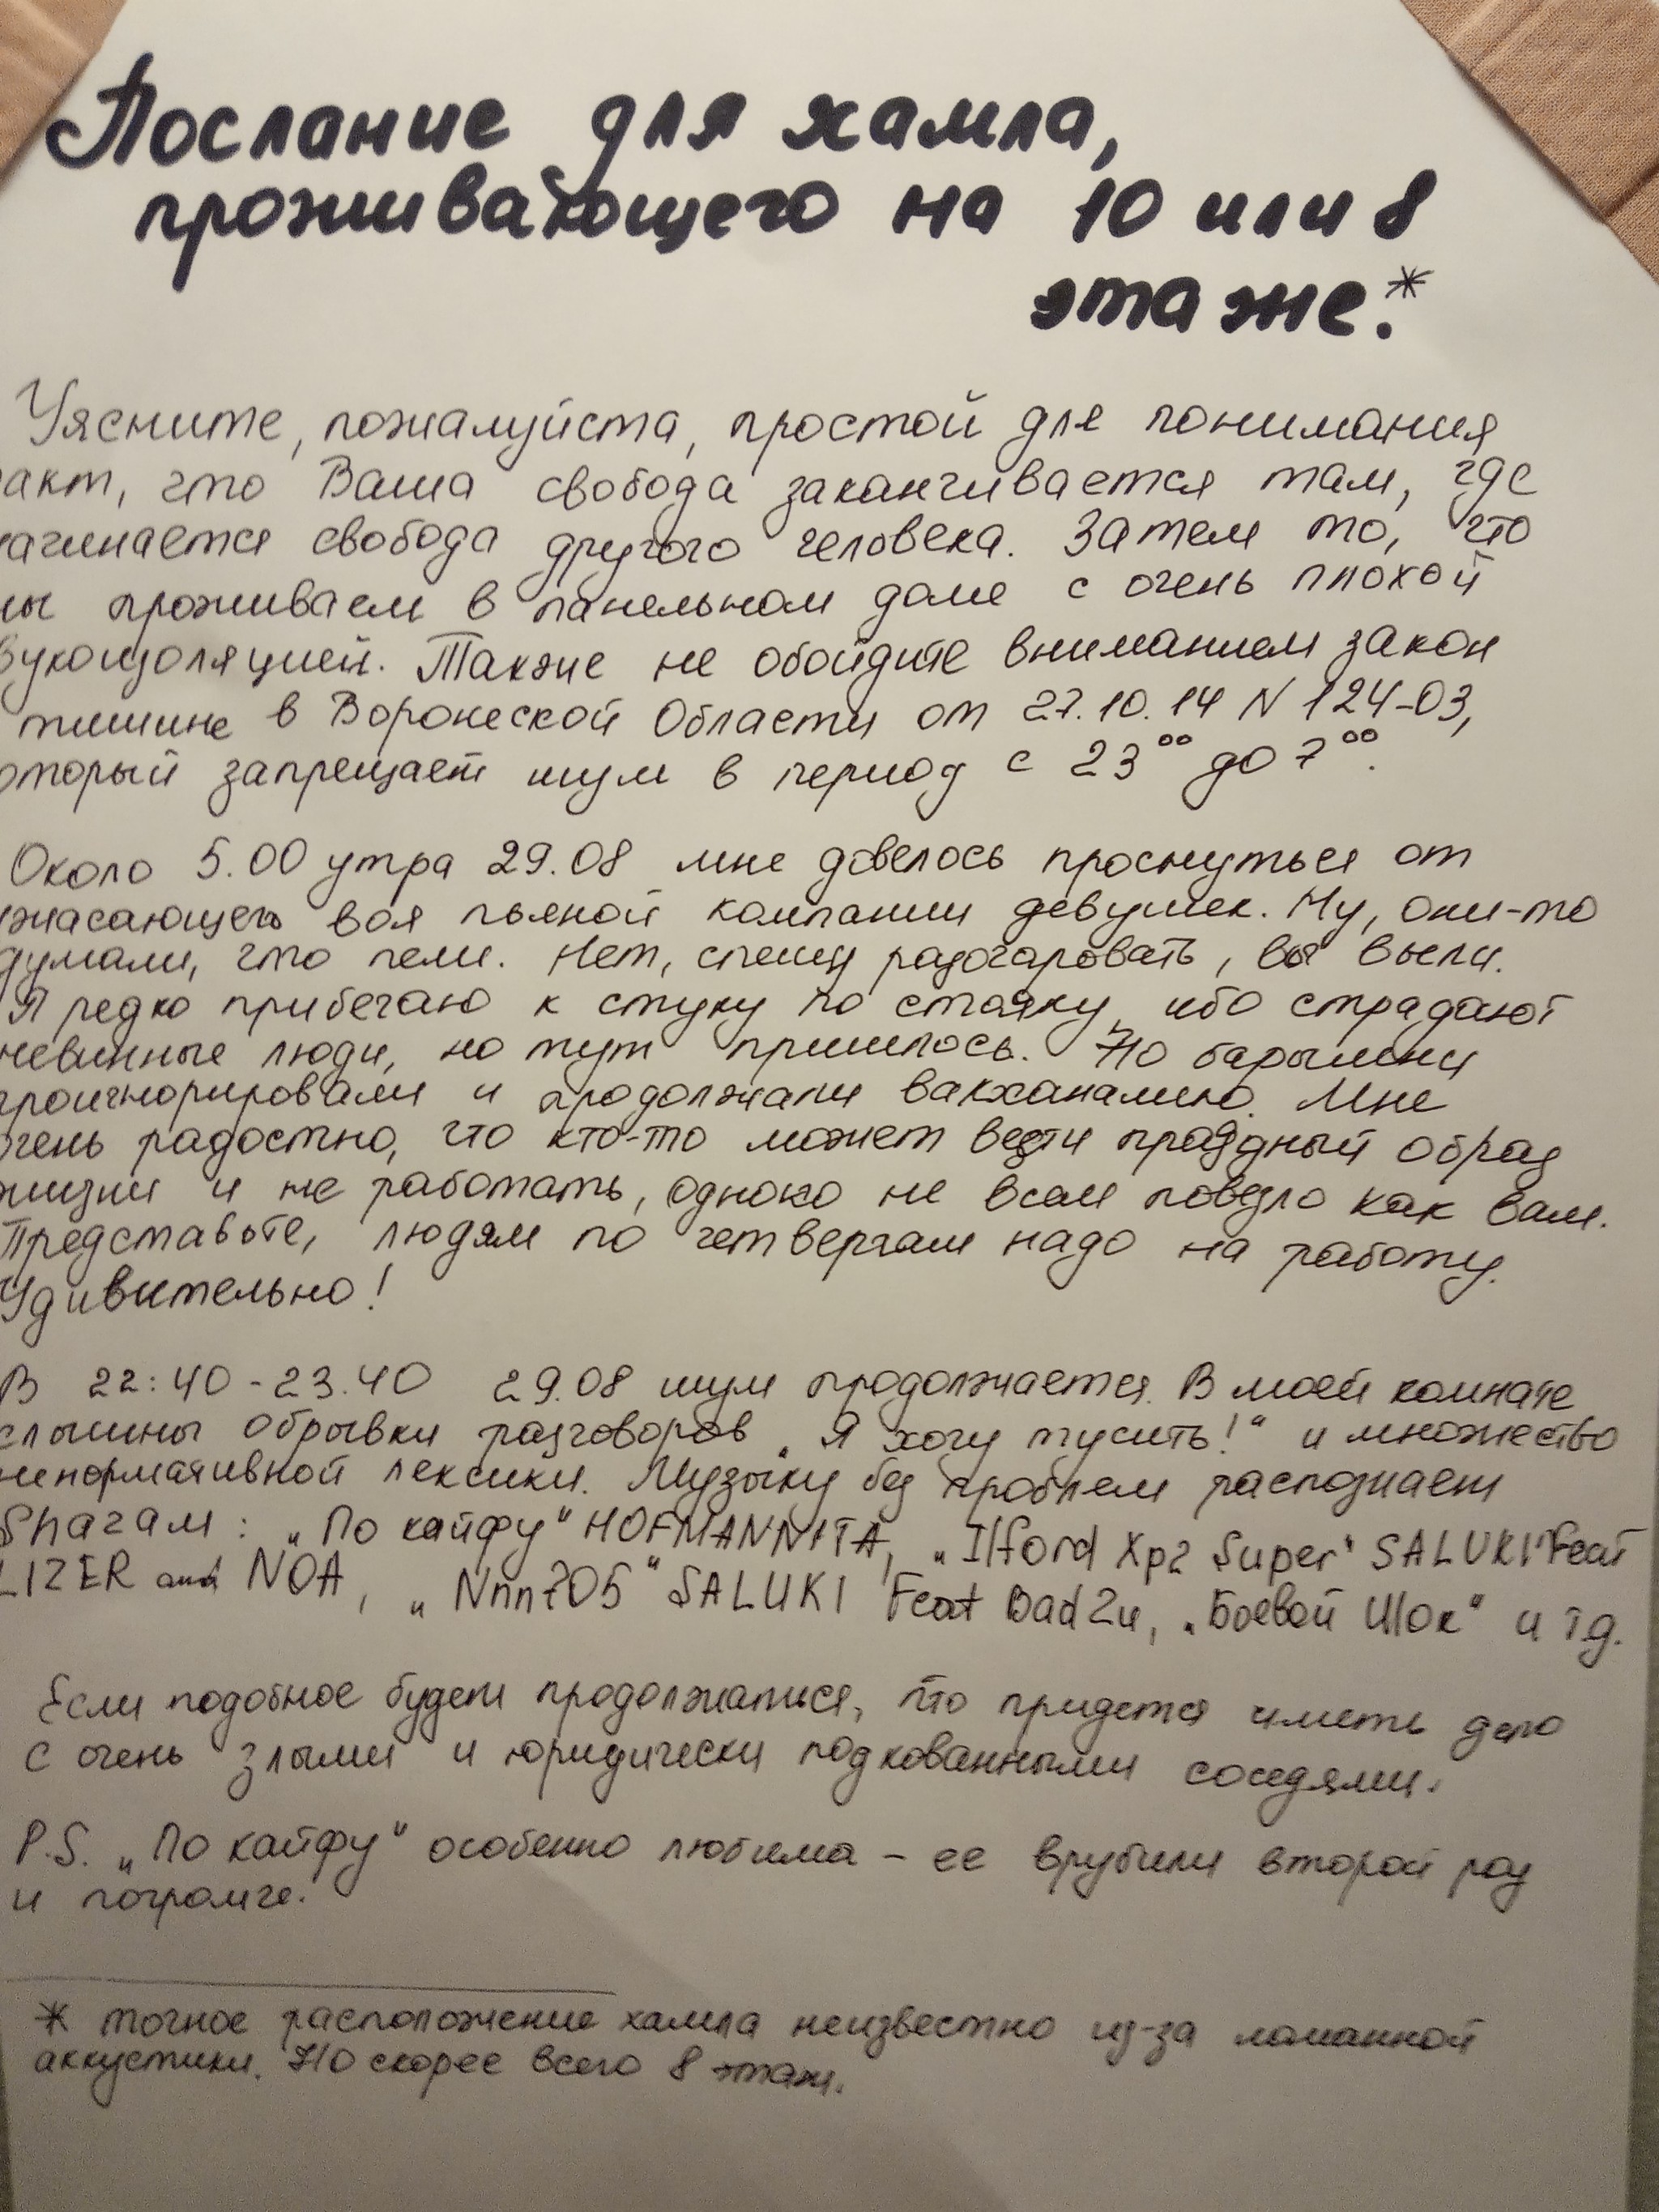 Послание для хамла,
проживающего на 10 или 8
этаже.*
Уясните, пожалуйста, простой для понимания
акт, что Ваша свобода заканчивается там, где
ачинается свобода другого человека. Затем то, что
ы проживаем в панельном доме с очень плохой
вукоизоляцией. Также не обойдите вниманием закон
тишине в Воронеской Области от 27.10.14 N 124-ОЗ,
оторый запрещает шум в период с 23⁰⁰ до 7⁰⁰.
Около 5.00 утра 29.08 мне довелось проснуться от
жасающего воя пьяной компании девушек. Ну, они-то
думали, что пели. Нет, спешу разочаровать, вы выли.
Я редко прибегаю к стуку по стояку, ибо страдают
невинные люди, но тут пришлось. Но барышни
проигнорировали и продолжали вакханалию. Мне
очень радостно, что кто-то может вести праздный образ
жизни и не работать, однако не всем повезло как вам.
Представьте, людям по четвергам надо на работу.
Удивительно!
В 22:40-23.40 29.08 шум продолжается. В моей комнате
слышны обрывки разговоров „Я хочу тусить!“ и множество
ненормативной лексики. Музыку без проблем распознает
Shazam: „По кайфу“ HOFMANNITA, „Ilford Xp2 Super“ SALUKI Feat
LIZER and NOA, „Nnn705“ SALUKI Feat Bad Zu, „Боевой Шок“ и т.д.
Если подобное будет продолжаться, то придется иметь дело
с очень злыми и юридически подкованными соседями.
P.S. „По кайфу“ особенно любима – ее врубили второй раз
и погромче.
* точное расположение хамла неизвестно из-за ломанной
аккустики. Но скорее всего 8 этаж.